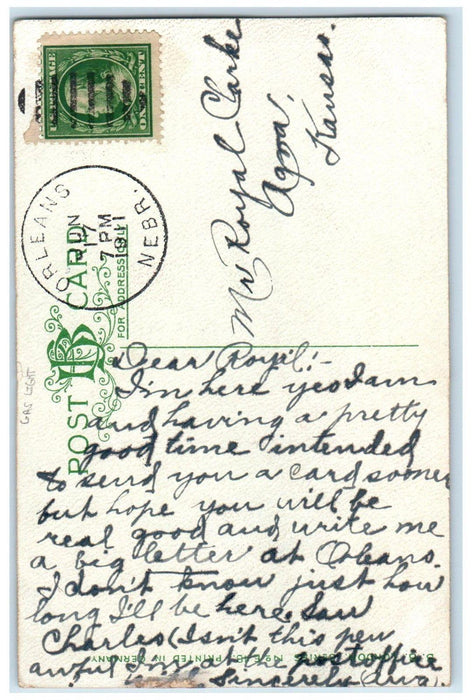 U.S. POSTAGE
ONE CENT
ORLEANS
JUN
17
7 PM
1911
NEBR.
POST CARD
BB
FOR ADDRESS ONLY
GRS LIGHT
Mr Royal Clarke
Agra,
Kansas.
Dear Royil:-
I'm here yes I am
and having a pretty
good time intended
to send you a card sooner
but hope you will be
real good and write me
a big letter at Orleans.
I don't know just how
long I'll be here. Saw
Charles (Isn't this pen
awful I'm at the post office
Sincerely (Iva)
PRINTED IN GERMANY